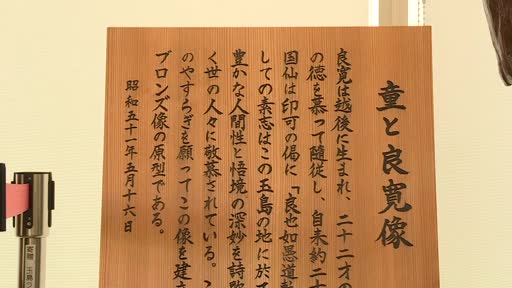 童と良寛像
良寛は越後に生まれ、二十二才の
の徳を慕って随従し、自来約二十
国仙は印可の偈に「良也如愚道転
しての素志はこの玉島の地に於て
豊かな人間性と悟境の深妙を詩歌
く世の人々に敬慕されている。こ
のやすらぎを願ってこの像を建立
ブロンズ像の原型である。
昭和五十一年五月十六日
寄贈 玉島ラ